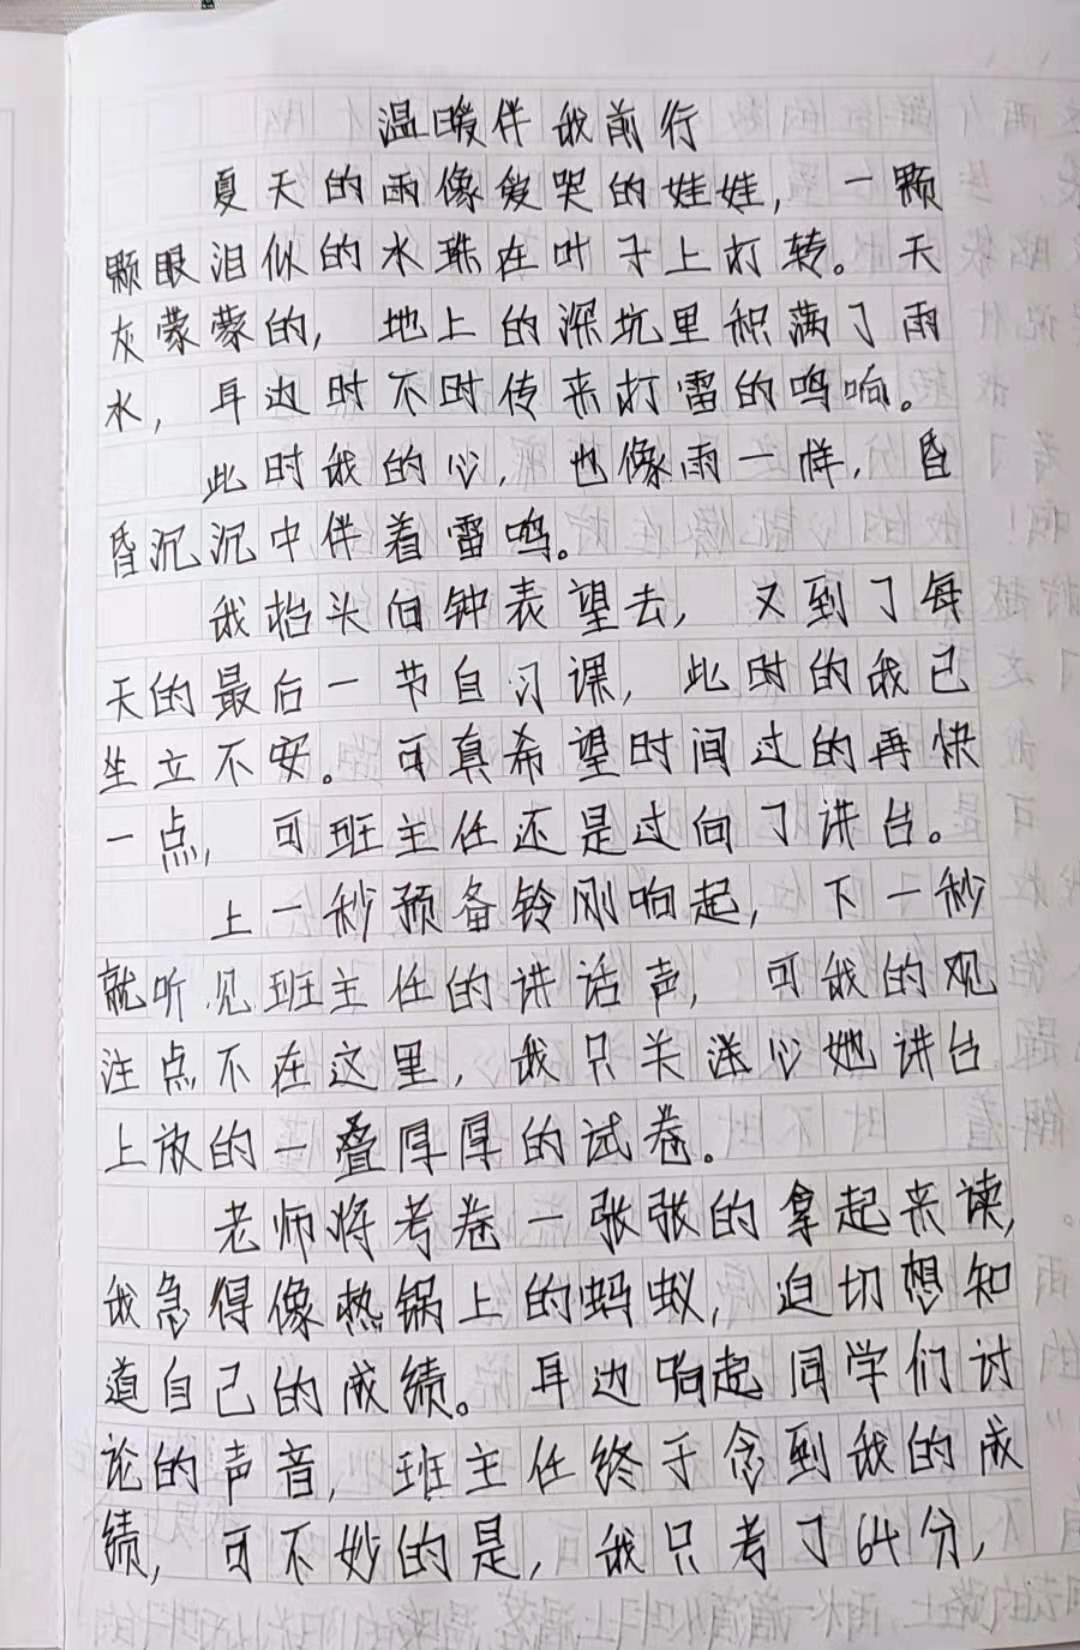 温暖伴我前行
夏天的雨像爱哭的娃娃，一颗
颗眼泪似的水珠在叶子上打转。天
灰蒙蒙的，地上的深坑里积满了雨
水，耳边时不时传来打雷的鸣响。
此时我的心，也像雨一样，昏
昏沉沉中伴着雷鸣。
我抬头向钟表望去，又到了每
天的最后一节自习课，此时的我已
坐立不安。可真希望时间过的再快
一点，可班主任还是过向了讲台。
上一秒预备铃刚响起，下一秒
就听见班主任的讲话声，可我的观
注点不在这里，我只关送心她讲台
上放的一叠厚厚的试卷。
老师将考卷一张张的拿起来读，
我急得像热锅上的蚂蚁，迫切想知
道自己的成绩。耳边响起同学们讨
论的声音，班主任终于念到我的成
绩，可不妙的是，我只考了64分，